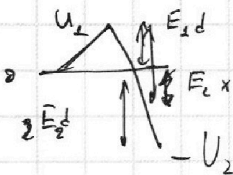 U₁ E₁d
E꜀ x
E₂d
- U₂